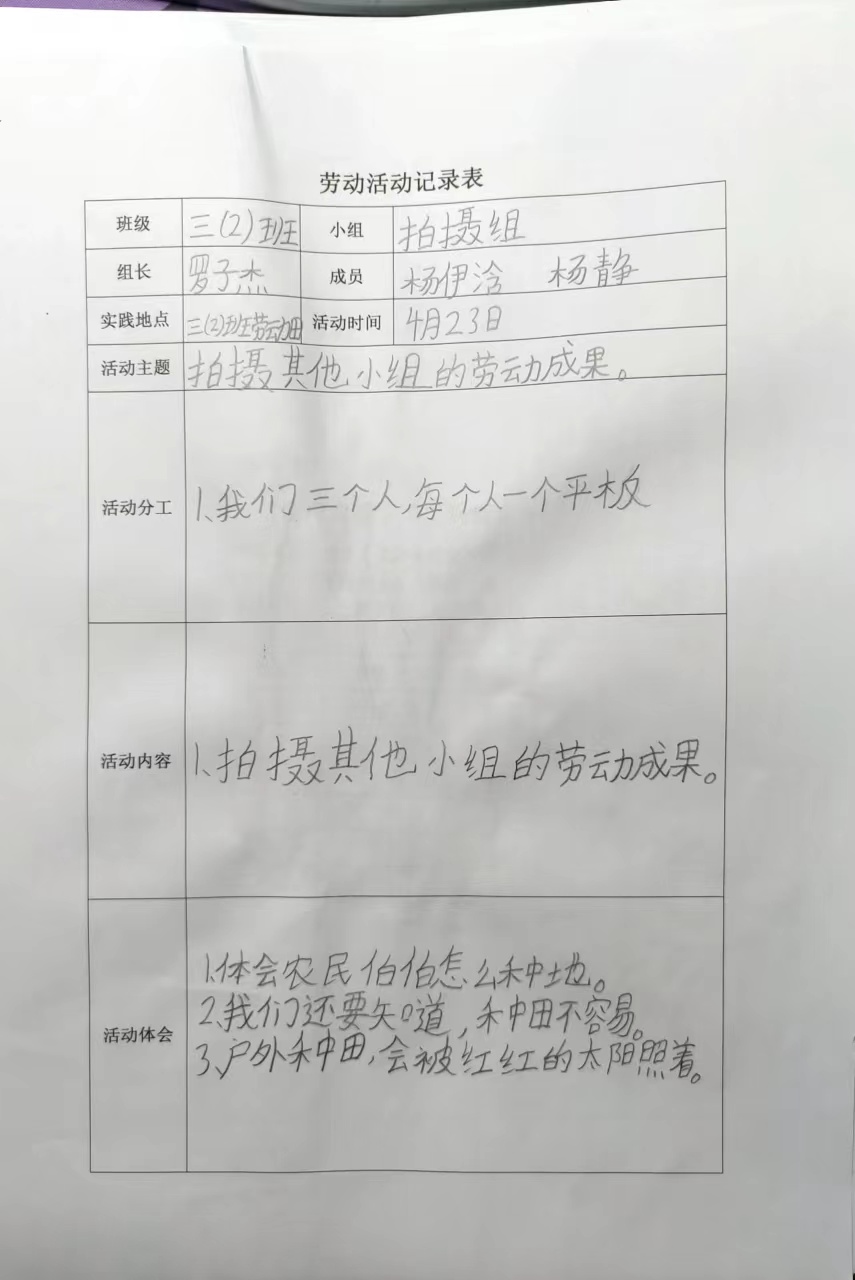 劳动活动记录表
班级 三(2)班 小组 拍摄组
组长 罗子杰 成员 杨伊浛 杨静
实践地点 三(2)班劳动田 活动时间 4月23日
活动主题 拍摄其他小组的劳动成果。
活动分工 1、我们三个人,每个人一个平板
活动内容 1、拍摄其他小组的劳动成果。
活动体会
1、体会农民伯伯怎么种地。
2、我们还要知道,种田不容易。
3、户外种田,会被红红的太阳照着。